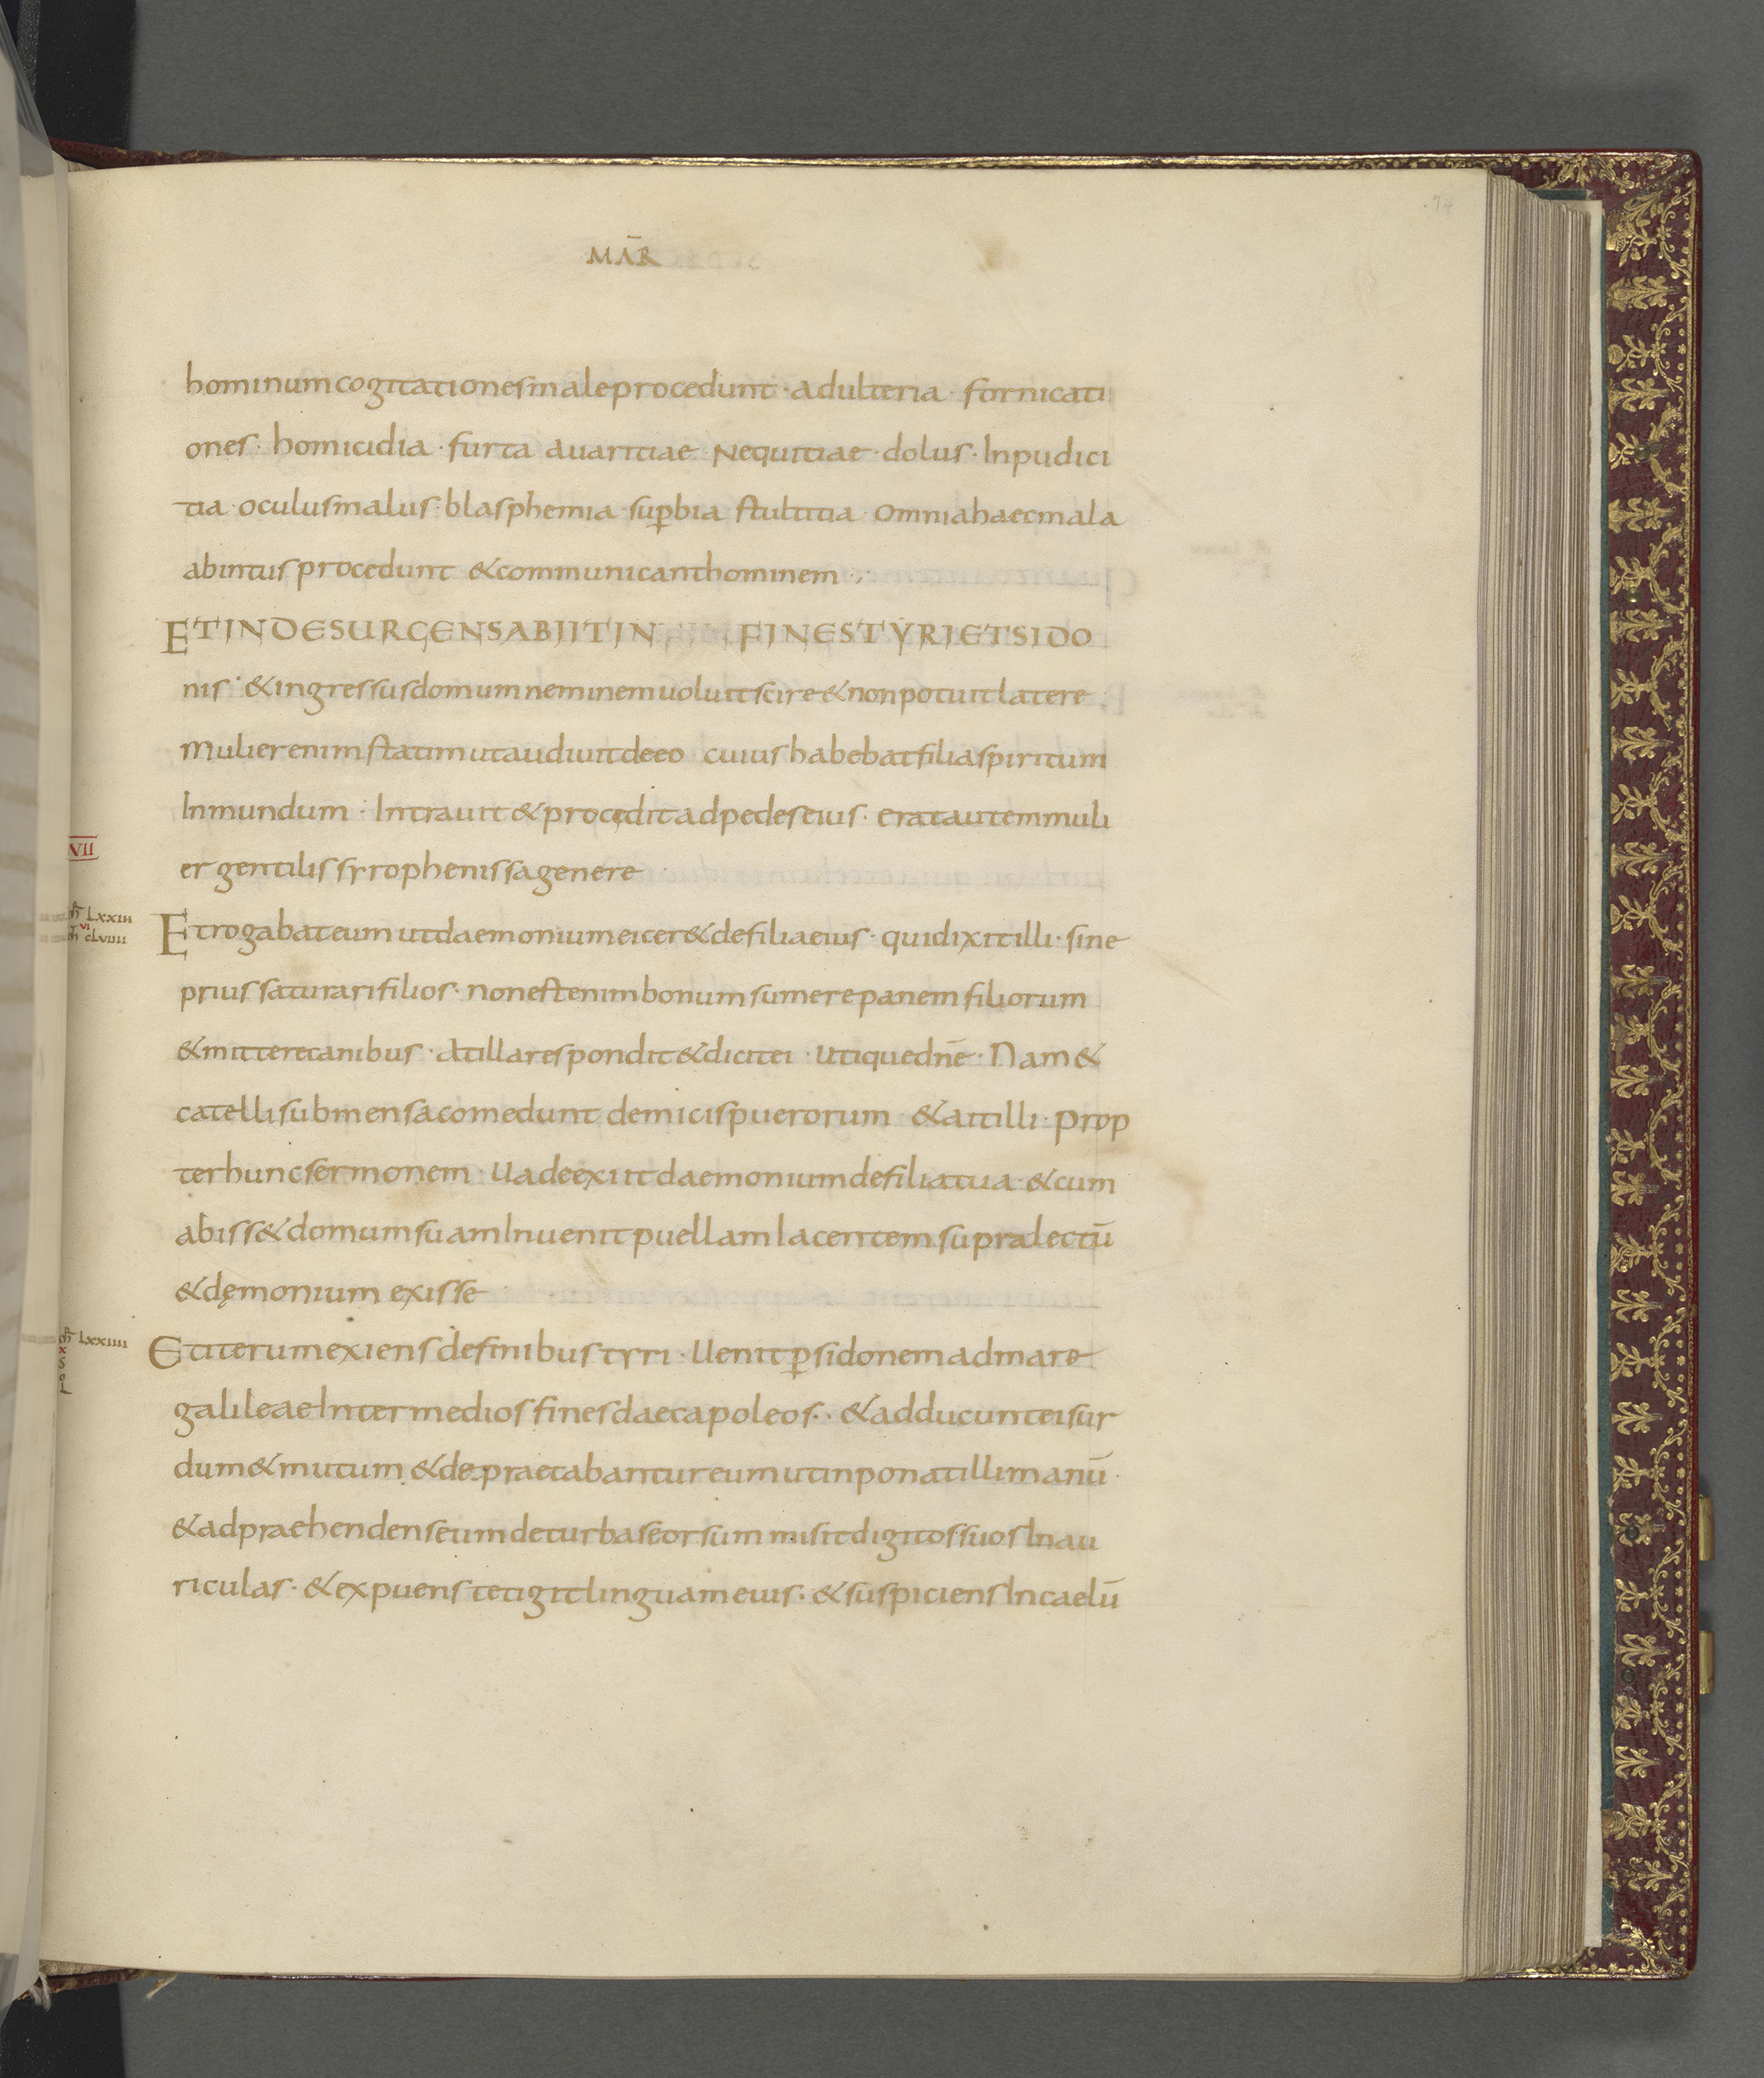 74
MĀR
hominumcogitationesmaleprocedunt · adulteria · fornicati
ones · homicidia · furta avaritiae · Nequitiae · dolus · Inpudici
tia · oculusmalus · blasphemia · suꝑbia stultitia · omniahaecmala
abintusprocedunt &communicanthominem ·,·
ETINDESURGENSABIITIN FINESTYRIETSIDO
nis · &ingressusdomumneminemuoluitscire&nonpotuitlatere
Mulierenimstatimutaudiuitdeeo cuiushabebatfiliaspiritum
Inmundum · Intrauit&procęditadpedeseius · eratautemmuli
ergentilissyrophenissagenere
VII
LXXIII
VI
CLVIIII
Etrogabateumutdaemoniumeicer&defiliaeius · quidixitilli · sine
priussaturarifilios · nonestenimbonumsumerepanemfiliorum
&mitterecanibus · Atillarespondit&dicitei · Utiquedn̄e · Nam&
catellisubmensacomedunt demicispuerorum &aitilli · prop
terhuncsermonem · Uadeexiitdaemoniumdefiliatua &cum
abiss&domumsuamInuenitpuellamIacentemsupralectū
&dęmonium exisse
LXXIIII
X
S
o
L
Etiterumexiensdefinibustyri · Uenitꝑsidonemadmare
galileaeIntermediosfinesdaecapoleos · &adducunteisur
dum&mutum &depraecabantureumutinponatillimanū
&adpraehendenseumdeturbaseorsum misitdigitossuosInau
riculas · &expuenstetigitlinguameius · &suspiciensIncaelū